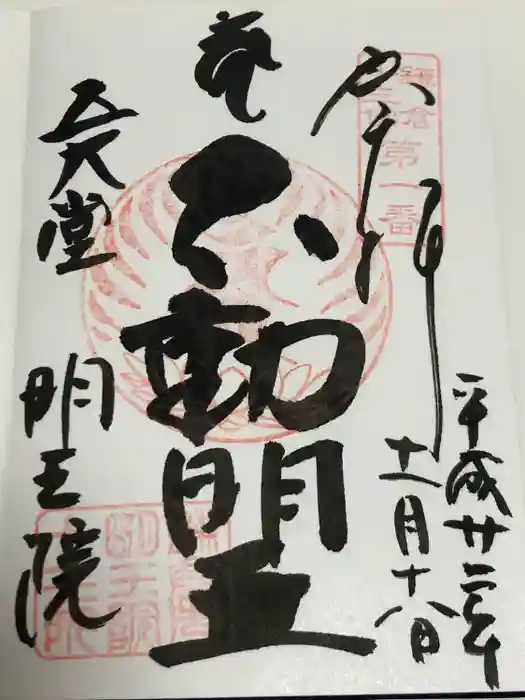 奉拝
鎌倉
十三仏
第一番
平成廿二年
十一月十八日
不動明王
五大堂
明王院